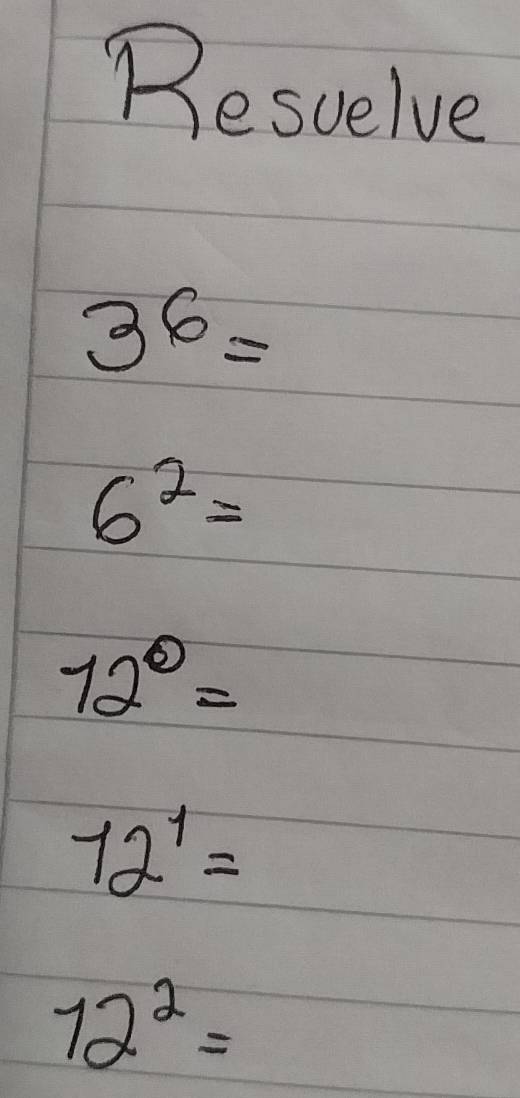 Resuelve
3⁶ =
6² =
12⁰ =
12¹ =
12² =